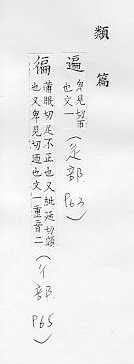 類篇
遍 卑見切帀
也文一 (辵部 P63)
徧 蒲眠切足不正也又紕延切
也又卑見切也文一重音二 (彳部 P65)